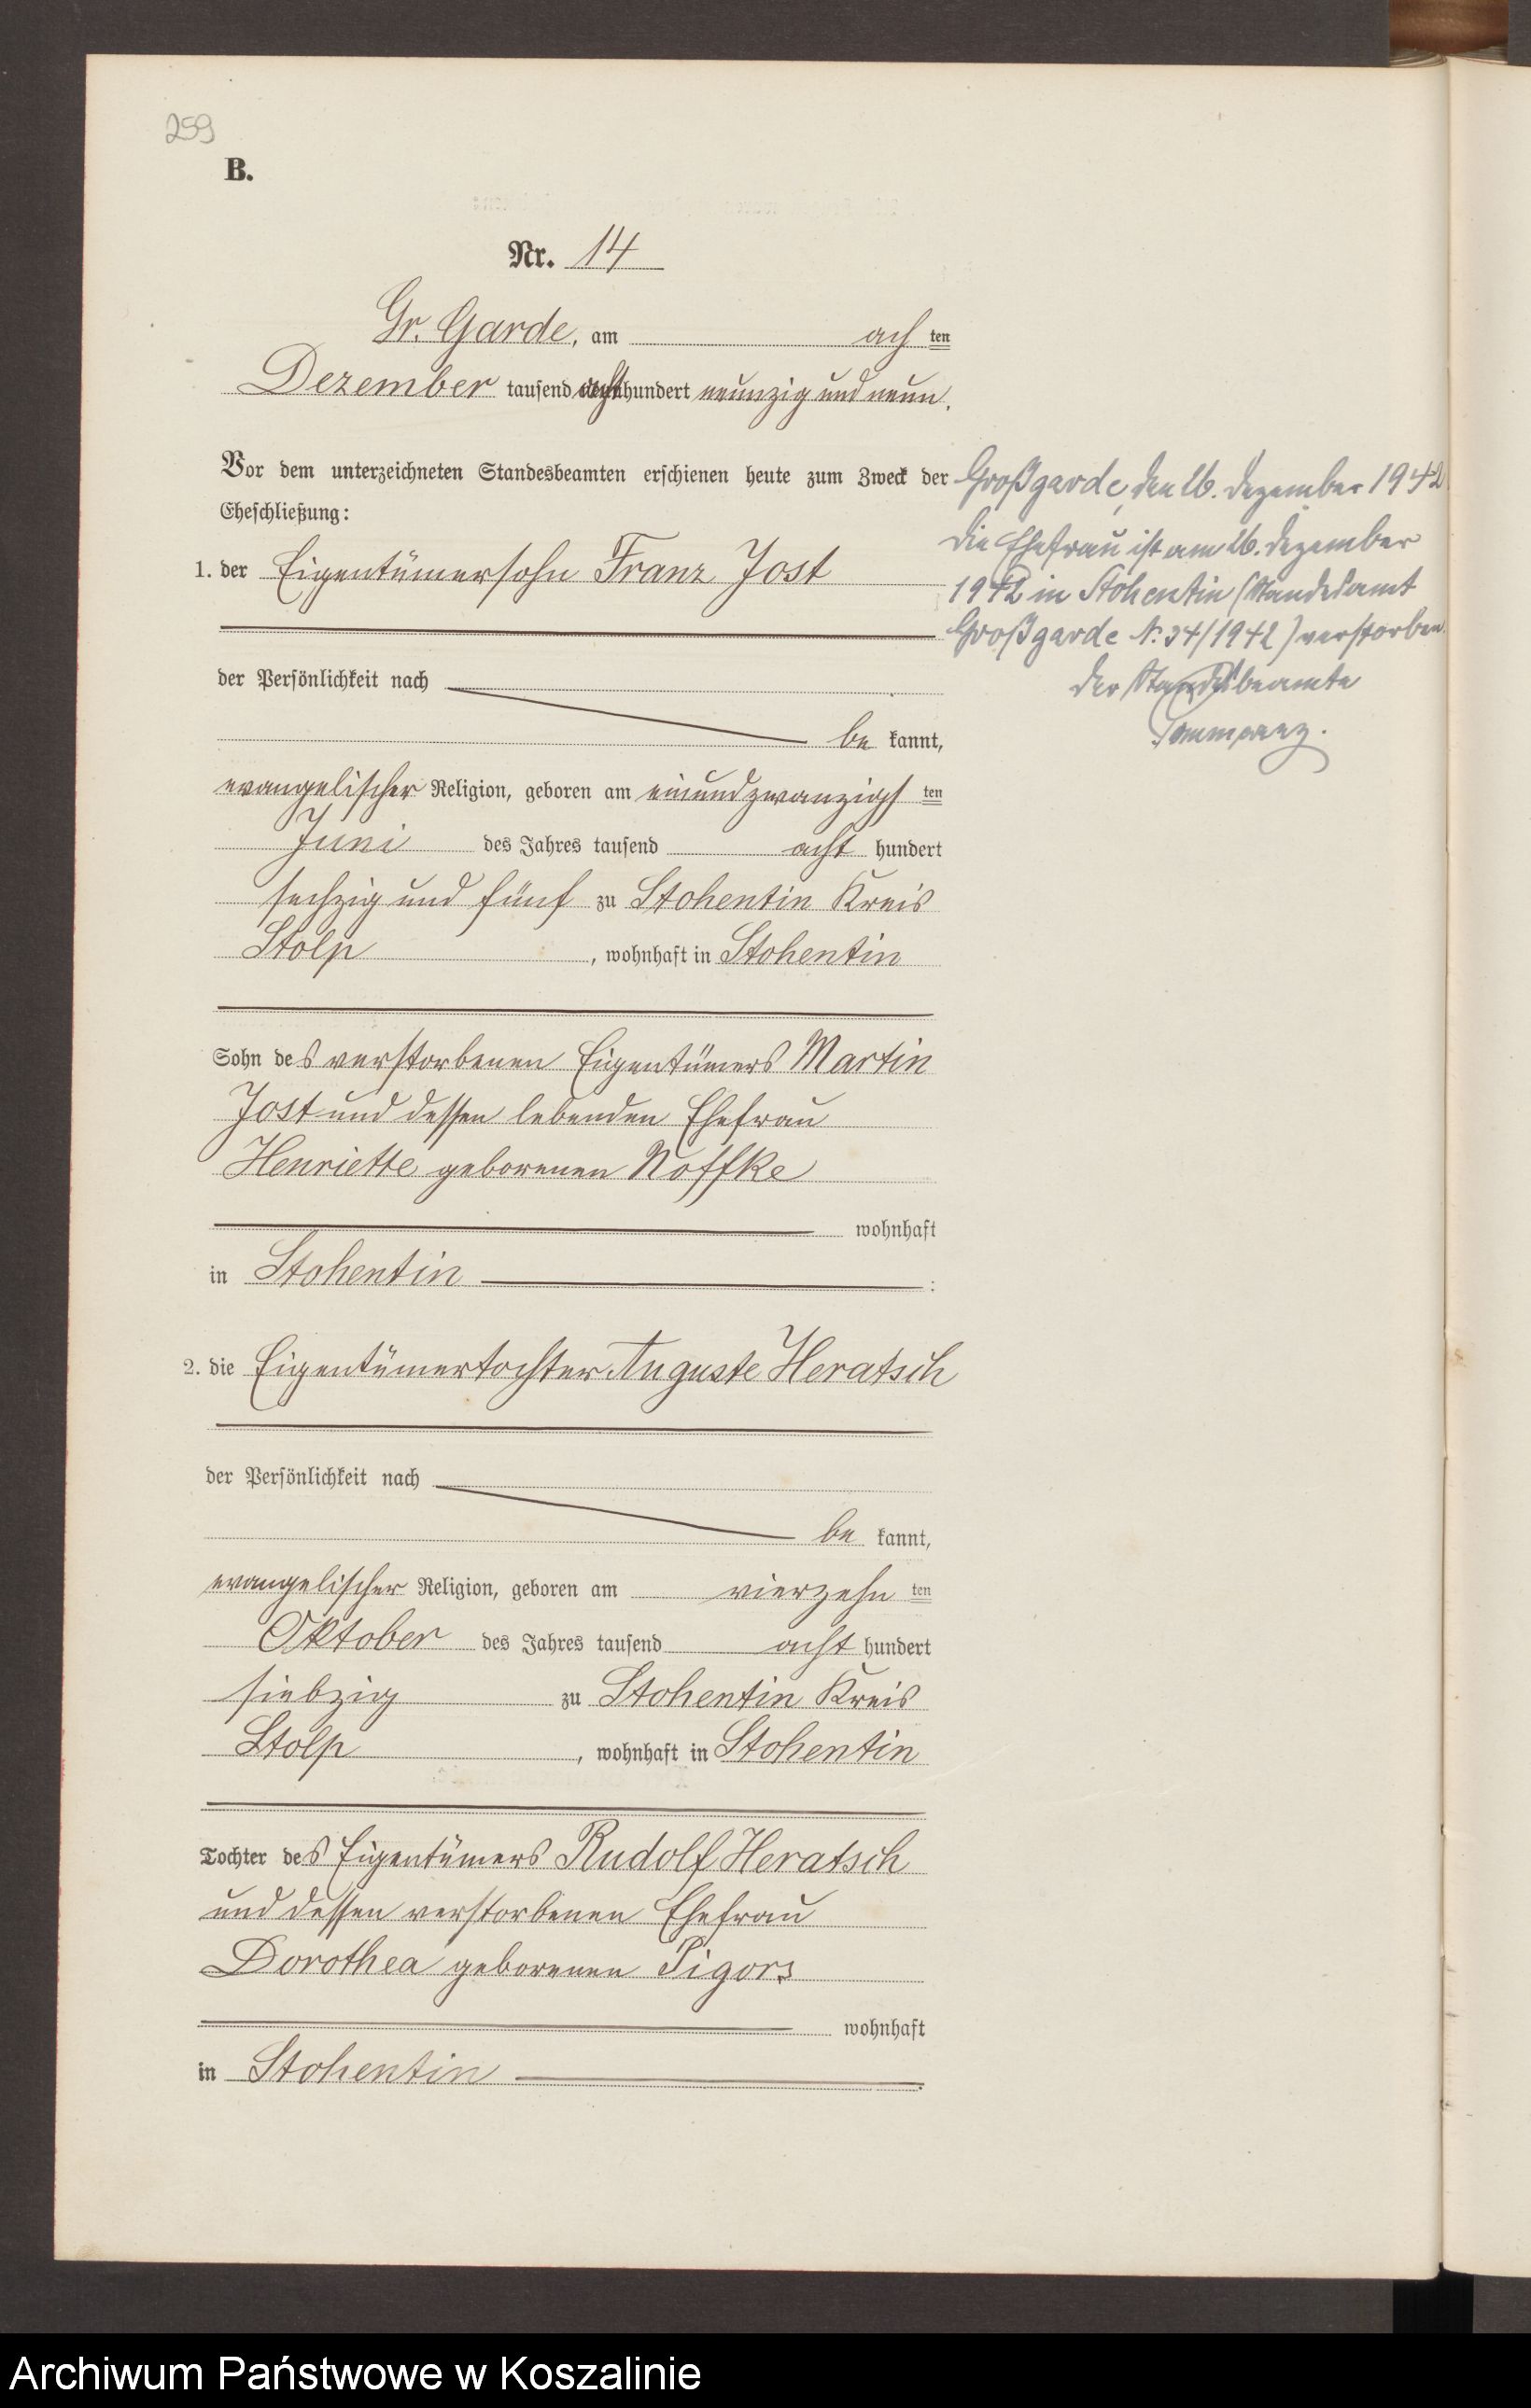 259
B.
Nr. 14
Gr. Garde, am ach ten
Dezember tausend achthundert neunzig und neun.
Vor dem unterzeichneten Standesbeamten erschienen heute zum Zweck der
Eheschließung:
1. der Eigentümersohn Franz Jost
der Persönlichkeit nach
be kannt,
evangelischer Religion, geboren am einundzwanzigs ten
Juni des Jahres tausend acht hundert
sechzig und fünf zu Stohentin Kreis
Stolp, wohnhaft in Stohentin
Sohn des verstorbenen Eigentümers Martin
Jost und dessen lebenden Ehefrau
Henriette geborenen Noffke
wohnhaft
in Stohentin :
2. die Eigentümertochter Auguste Heratsch
der Persönlichkeit nach
be kannt,
evangelischer Religion, geboren am vierzehn ten
Oktober des Jahres tausend acht hundert
siebzig zu Stohentin Kreis
Stolp, wohnhaft in Stohentin
Tochter des Eigentümers Rudolf Heratsch
und dessen verstorbenen Ehefrau
Dorothea geborenen Pigors
wohnhaft
in Stohentin .
Großgarde, den 26. Dezember 1942
Die Ehefrau ist am 26. Dezember
1942 in Stohentin (Standesamt
Großgarde N. 34/1942) verstorben.
Der Standesbeamte
Archiwum Państwowe w Koszalinie